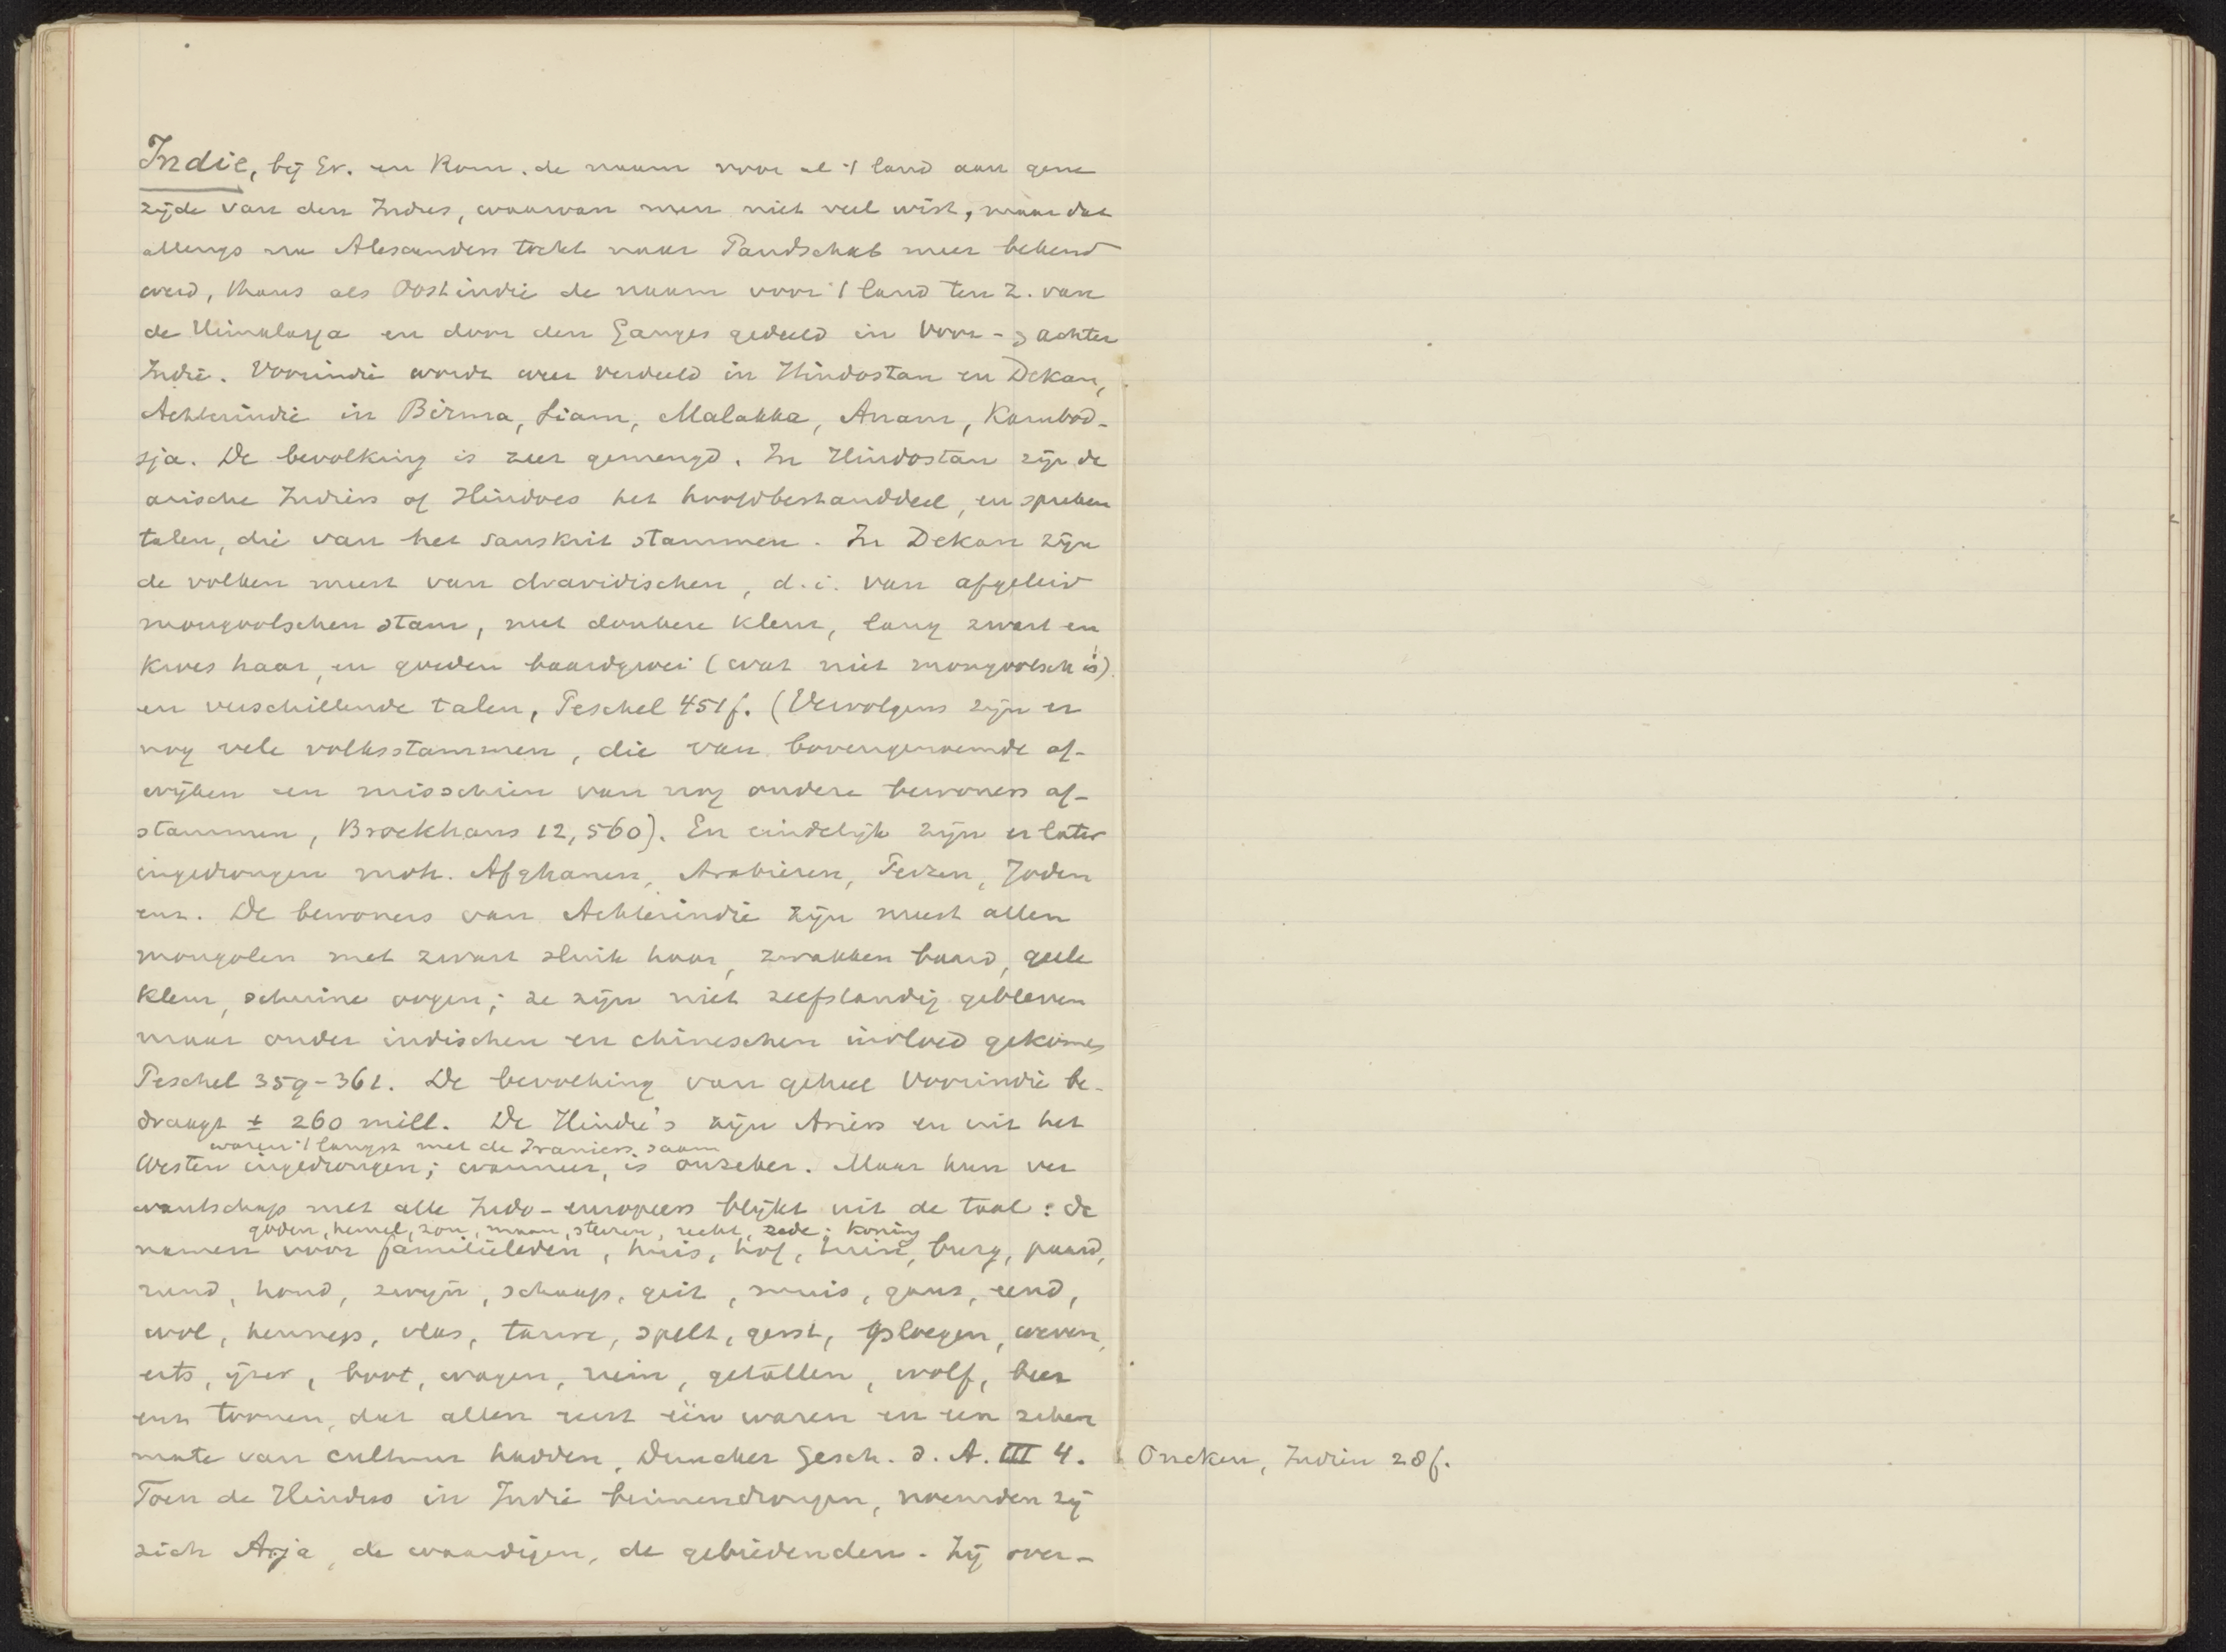 Indië, bij Gr. en Rom. de naam voor al 't land aan gene
zijde van den Indus, waarvan men niet veel wist, maar dat
allengs na Alexanders tocht naar Pandschab meer bekend
werd, thans als Oostindië de naam voor 't land ten Z. van
de Himalaya en door den Ganges gedeeld in Voor- & achter
Indië. Voorindië wordt weer verdeeld in Hindostan en Dekan,
Achterindië in Birma, Siam, Malakka, Anam, Kambod-
sja. De bevolking is zeer gemengd. In Hindostan zijn de
arische Indiërs of Hindoes het hoofdbestanddeel, en spreken
talen, die van het sanskrit stammen. In Dekan zijn
de volken meest van dravidischen, d.i. van afgeleid
mongoolschen stam, met donkere kleur, lang zwart en
kroes haar, en goeden baardgroei (wat niet mongoolsch is)
en verschillende talen, Peschel 451f. (Vervolgens zijn er
nog vele volksstammen, die van bovengenoemde af-
wijken en misschien van nog andere bewoners af-
stammen, Brockhaus 12, 560). En eindelijk zijn er later
ingedrongen moh. Afghanen, Arabieren, Perzen, Joden
enz. De bewoners van Achterindië zijn meest allen
mongolen met zwart sluik haar, zwakken baard, gele
kleur, scheuine oogen; ze zijn niet zelfstandig gebleven
maar onder indischen en chineschen invloed gekomen
Peschel 359-361. De bevolking van geheel Voorindië be-
draagt ± 260 mill. De Hindu's zijn Ariërs en uit het
waren 't langst met de Iraniers saam
Westen ingedrongen; wanneer, is onzeker. Maar hun ver
wantschap met alle Indo-europeers blijkt uit de taal: de
goden, hemel, zon, maan, sterren, recht, zede; koning
namen voor familieleden, huis, hof, tuin, burg, paard,
rund, hond, zwijn, schaap, geit, muis, gans, eend,
wol, hennep, vlas, tarwe, spelt, gerst, ploegen, weven,
erts, ijzer, boot, wagen, riem, getallen, wolf, beer
enz toonen, dat allen eerst één waren en een zekere
mate van cultuur hadden, Duncker Gesch. d. A. III 4.
Oncken, Indien 28f.
Toen de Hindus in Indië binnendrongen, noemden zij
zich Arja, de waardigen, de gebiedenden. Zij over-